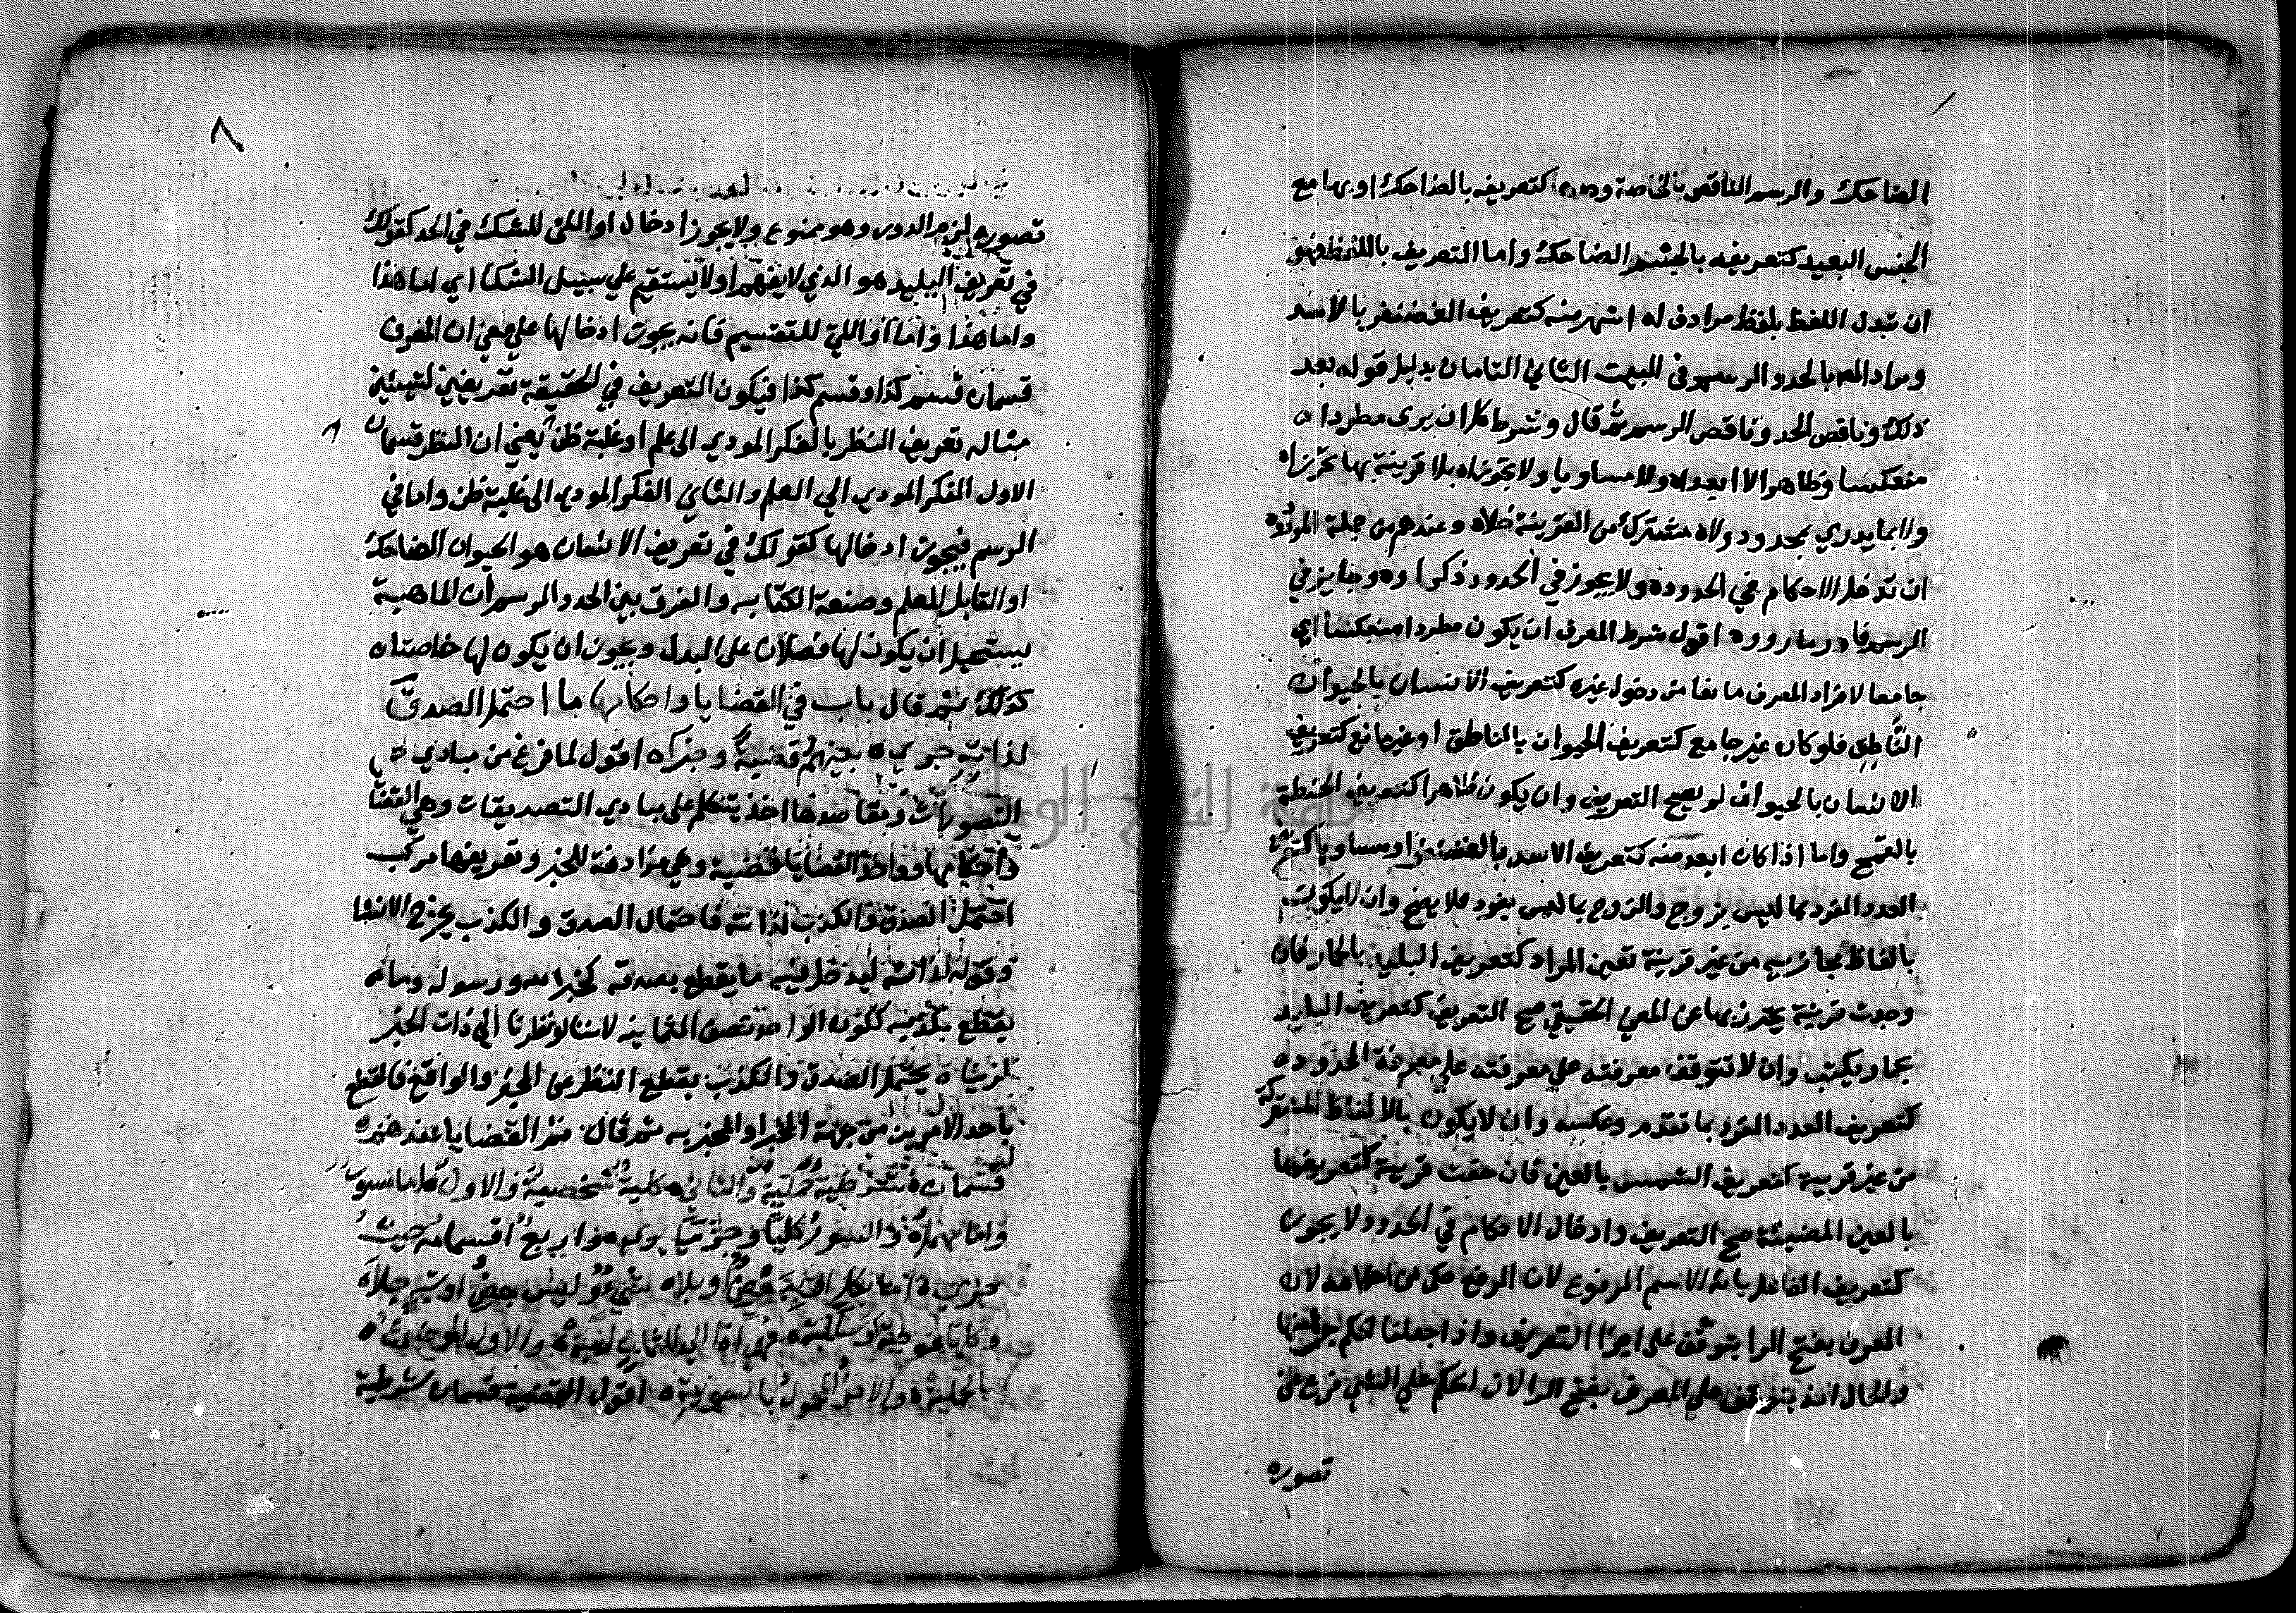 الضاحك والرسم الناقص بالخاصة وحدها كتعريفه بالضاحك او بها مع
الجنس البعيد كتعريفه بالجسم الضاحك واما التعريف باللفظ فهو
ان تبدل اللفظ بلفظ مرادف له اشهر منه كتعريف الغضنفر بالاسد
ومراد المص بالحد والرسم في البيت الثاني التامان بدليل قوله بعد
ذلك وناقص الحد وناقص الرسم ثم قال وشرط كل ان يرى مطردا ه
منعكسا وظاهرا لا ابعداه ولا مساويا ولا تجوزاه بلا قرينة بها تحرزاه
ولا بما يدري بمحدود ولاه مشترك من القرينة خلاه وعندهم من جملة المردوده
ان تدخل الاحكام في الحدوده ولا يجوز في الحدود ذكر اوه وجايز في
الرسم فادر ما رووه اقول شرط المعرف ان يكون مطردا منعكسا اي
جامعا لافراد المعرف مانعا من دخول غيره كتعريف الانسان بالحيوان
الناطق فلو كان غير جامع كتعريف الحيوان بالناطق او غير مانع كتعريف
الانسان بالحيوان لم يصح التعريف وان يكون ظاهرا كتعريف الحنطة
بالقمح واما اذا كان ابعد منه كتعريف الاسد بالغضنفر او مساويا كتعريف
العدد الفرد بما ليس بزوج والزوج بما ليس بفرد فلا يصح وان لا يكون
بالفاظ مجازيه من غير قرينة تعين المراد كتعريف البليد بالحمار فان
وجدت قرينة يحترز بها عن المعني الحقيقي صح التعريف كتعريف البليد
بحمار يكتب وان لا تتوقف معرفته علي معرفته علي معرفة الحدود ه
كتعريف العدد الفرد بما تقدم وعكسه وان لا يكون بالالفاظ المشتركة
من غير قرينة كتعريف الشمس بالعين فان حفت قرينة كتعريفها
بالعين المضيئة صح التعريف وادخال الاحكام في الحدود لا يجوز
كتعريف الفاعل بانه الاسم المرفوع لان الرفع حكم من احكامه لان
المعرف بفتح الرا يتوقف على اجزا التعريف واذا جعلنا الحكم جزا منها
والحال انه يتوقف علي المعرف بفتح الرا لان الحكم علي الشي فرع عن
تصوره
٨
تصوره لزم الدور وهو ممنوع ولا يجوز ادخال او اللتي للشك في الحد كقولك
في تعريف البليد هو الذي لا يفهم او لا يستقيم علي سبيل الشك اي اما هذا
واما هذا واما او اللتي للتقسيم فانه يجوز ادخالها علي معني ان المعرف
قسمان قسم كذا وقسم كذا فيكون التعريف في الحقيقة تعريفين لشيئين
مثاله تعريف النظر بالفكر المودي الى علم او غلبة ظن يعني ان النظر قسمان
الاول الفكر المودي الي العلم والثاني الفكر المودي الى غلبة ظن واما في
الرسم فيجوز ادخالها كقولك في تعريف الانسان هو الحيوان الضاحك
او القابل للعلم وصنعة الكتابه والفرق بين الحد والرسم ان الماهية
يستحيل ان يكون لها فصلان على البدل ويجوز ان يكون لها خاصتان
كذلك ثم قال باب في القضايا واحكامها ما احتمل الصدق
لذاته جري ه بينهم قضية وخبرا ه اقول لما فرغ من مبادي
التصورات ومقاصدها اخذ يتكلم على مبادي التصديقات وهي القضايا
واحكامها وواحد القضايا قضية وهي مرادفة للخبر وتعريفها مركب
احتمل الصدق والكذب لذاته فاحتمال الصدق والكذب يخرج الانشا
وقوله لذاته ليدخل فيه ما يقطع بصدقه كخبر الله ورسوله وما
يقطع بكذبه ككون الواحد نصف الثمانية لاننا لو نظرنا الى ذات الخبر
لراينا ه يحتمل الصدق والكذب بقطع النظر عن المخبر والواقع فالقطع
باحد الامرين من جهة المخبر او المخبر به ثم قال ثم القضايا عندهم ه
قسمان ه شرطية حملية والثاني ه كلية شخصية والاول اما مسور
واما مهمل ه والسور كليا وجزئيا يري ه واربع اقسامه حيث
جري ه اما بكل او ببعض او بلا ه شي وليس بعض او شبه جلا ه
وكلها موجبة وسالبة ه فهي اذا الي الثمان ايبة ه والاول الموضوع ه
بالحملية ه والاخر المحمول بالسوية ه اقول القضية قسمان شرطية